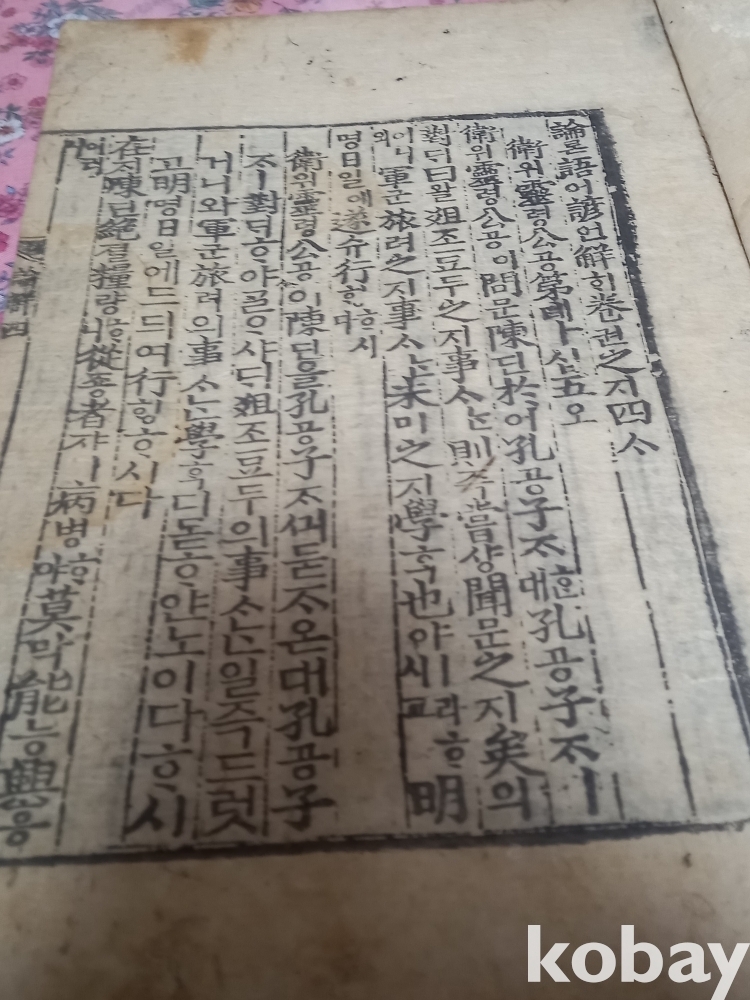 論론語어諺언解ᄒᆡ卷권之지四ᄉᆞ
衛위靈령公공第뎨十십五오
衛위靈령公공이問문陳딘於어孔공子ᄌᆞᄒᆞᆫ대孔공子ᄌᆞㅣ
對ᄃᆡ曰왈俎조豆두之지事ᄉᆞᄂᆞᆫ則즉嘗샹聞문之지矣의
어니와軍군旅려之지事ᄉᆞᄂᆞᆫ未미之지學ᄒᆞᆨ也야ㅣ라ᄒᆞ시고明
명日일에遂슈行ᄒᆡᆼᄒᆞ시다
衛위靈령公공이陳딘을孔공子ᄌᆞᄭᅴ묻ᄌᆞ온대孔공子
ᄌᆞㅣ對ᄃᆡᄒᆞ야ᄀᆞᆯᄋᆞ샤ᄃᆡ俎조豆두의事ᄉᆞᄂᆞᆫ일즉드럿
거니와軍군旅려의事ᄉᆞᄂᆞᆫ學ᄒᆞᆨ디몯ᄒᆞ얀노이다ᄒᆞ시
고明명日일에드듸여行ᄒᆡᆼᄒᆞ시다
在ᄌᆡ陳딘絶졀糧량ᄒᆞ니從죵者쟈ㅣ病병ᄒᆞ야莫막能능興흥
論解四
kobay